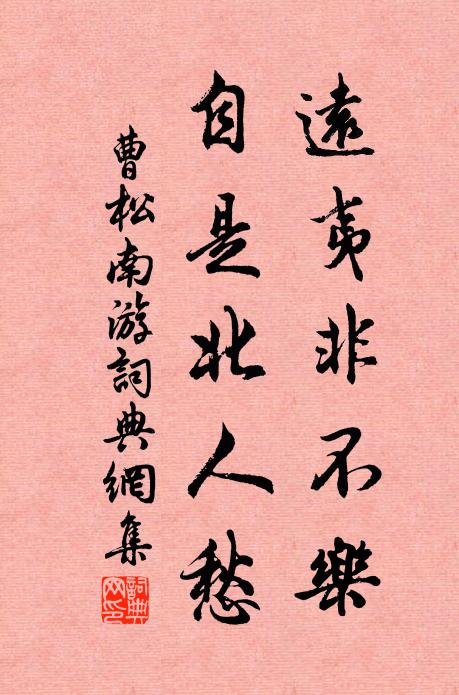 遠夷非不樂
自是北人愁
曹松南游詞典網集
詞典網印